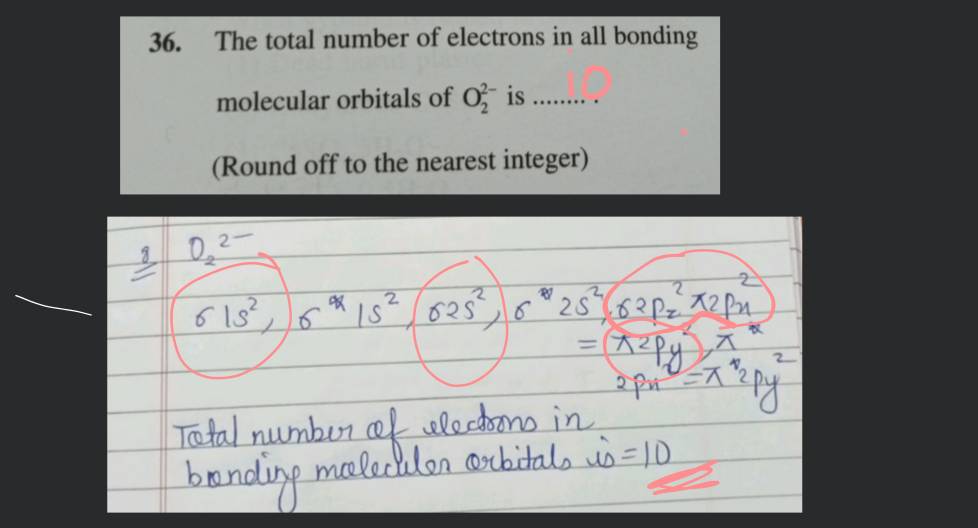 36. The total number of electrons in all bonding
molecular orbitals of O₂²⁻ is ........ 10 .
(Round off to the nearest integer)
8 O₂²⁻
σ1s², σ*1s², σ2s², σ*2s², σ2pz² π2px²
= π2py², π*
2px² = π*2py²
Total number of electrons in
bonding moleculer orbitals is = 10